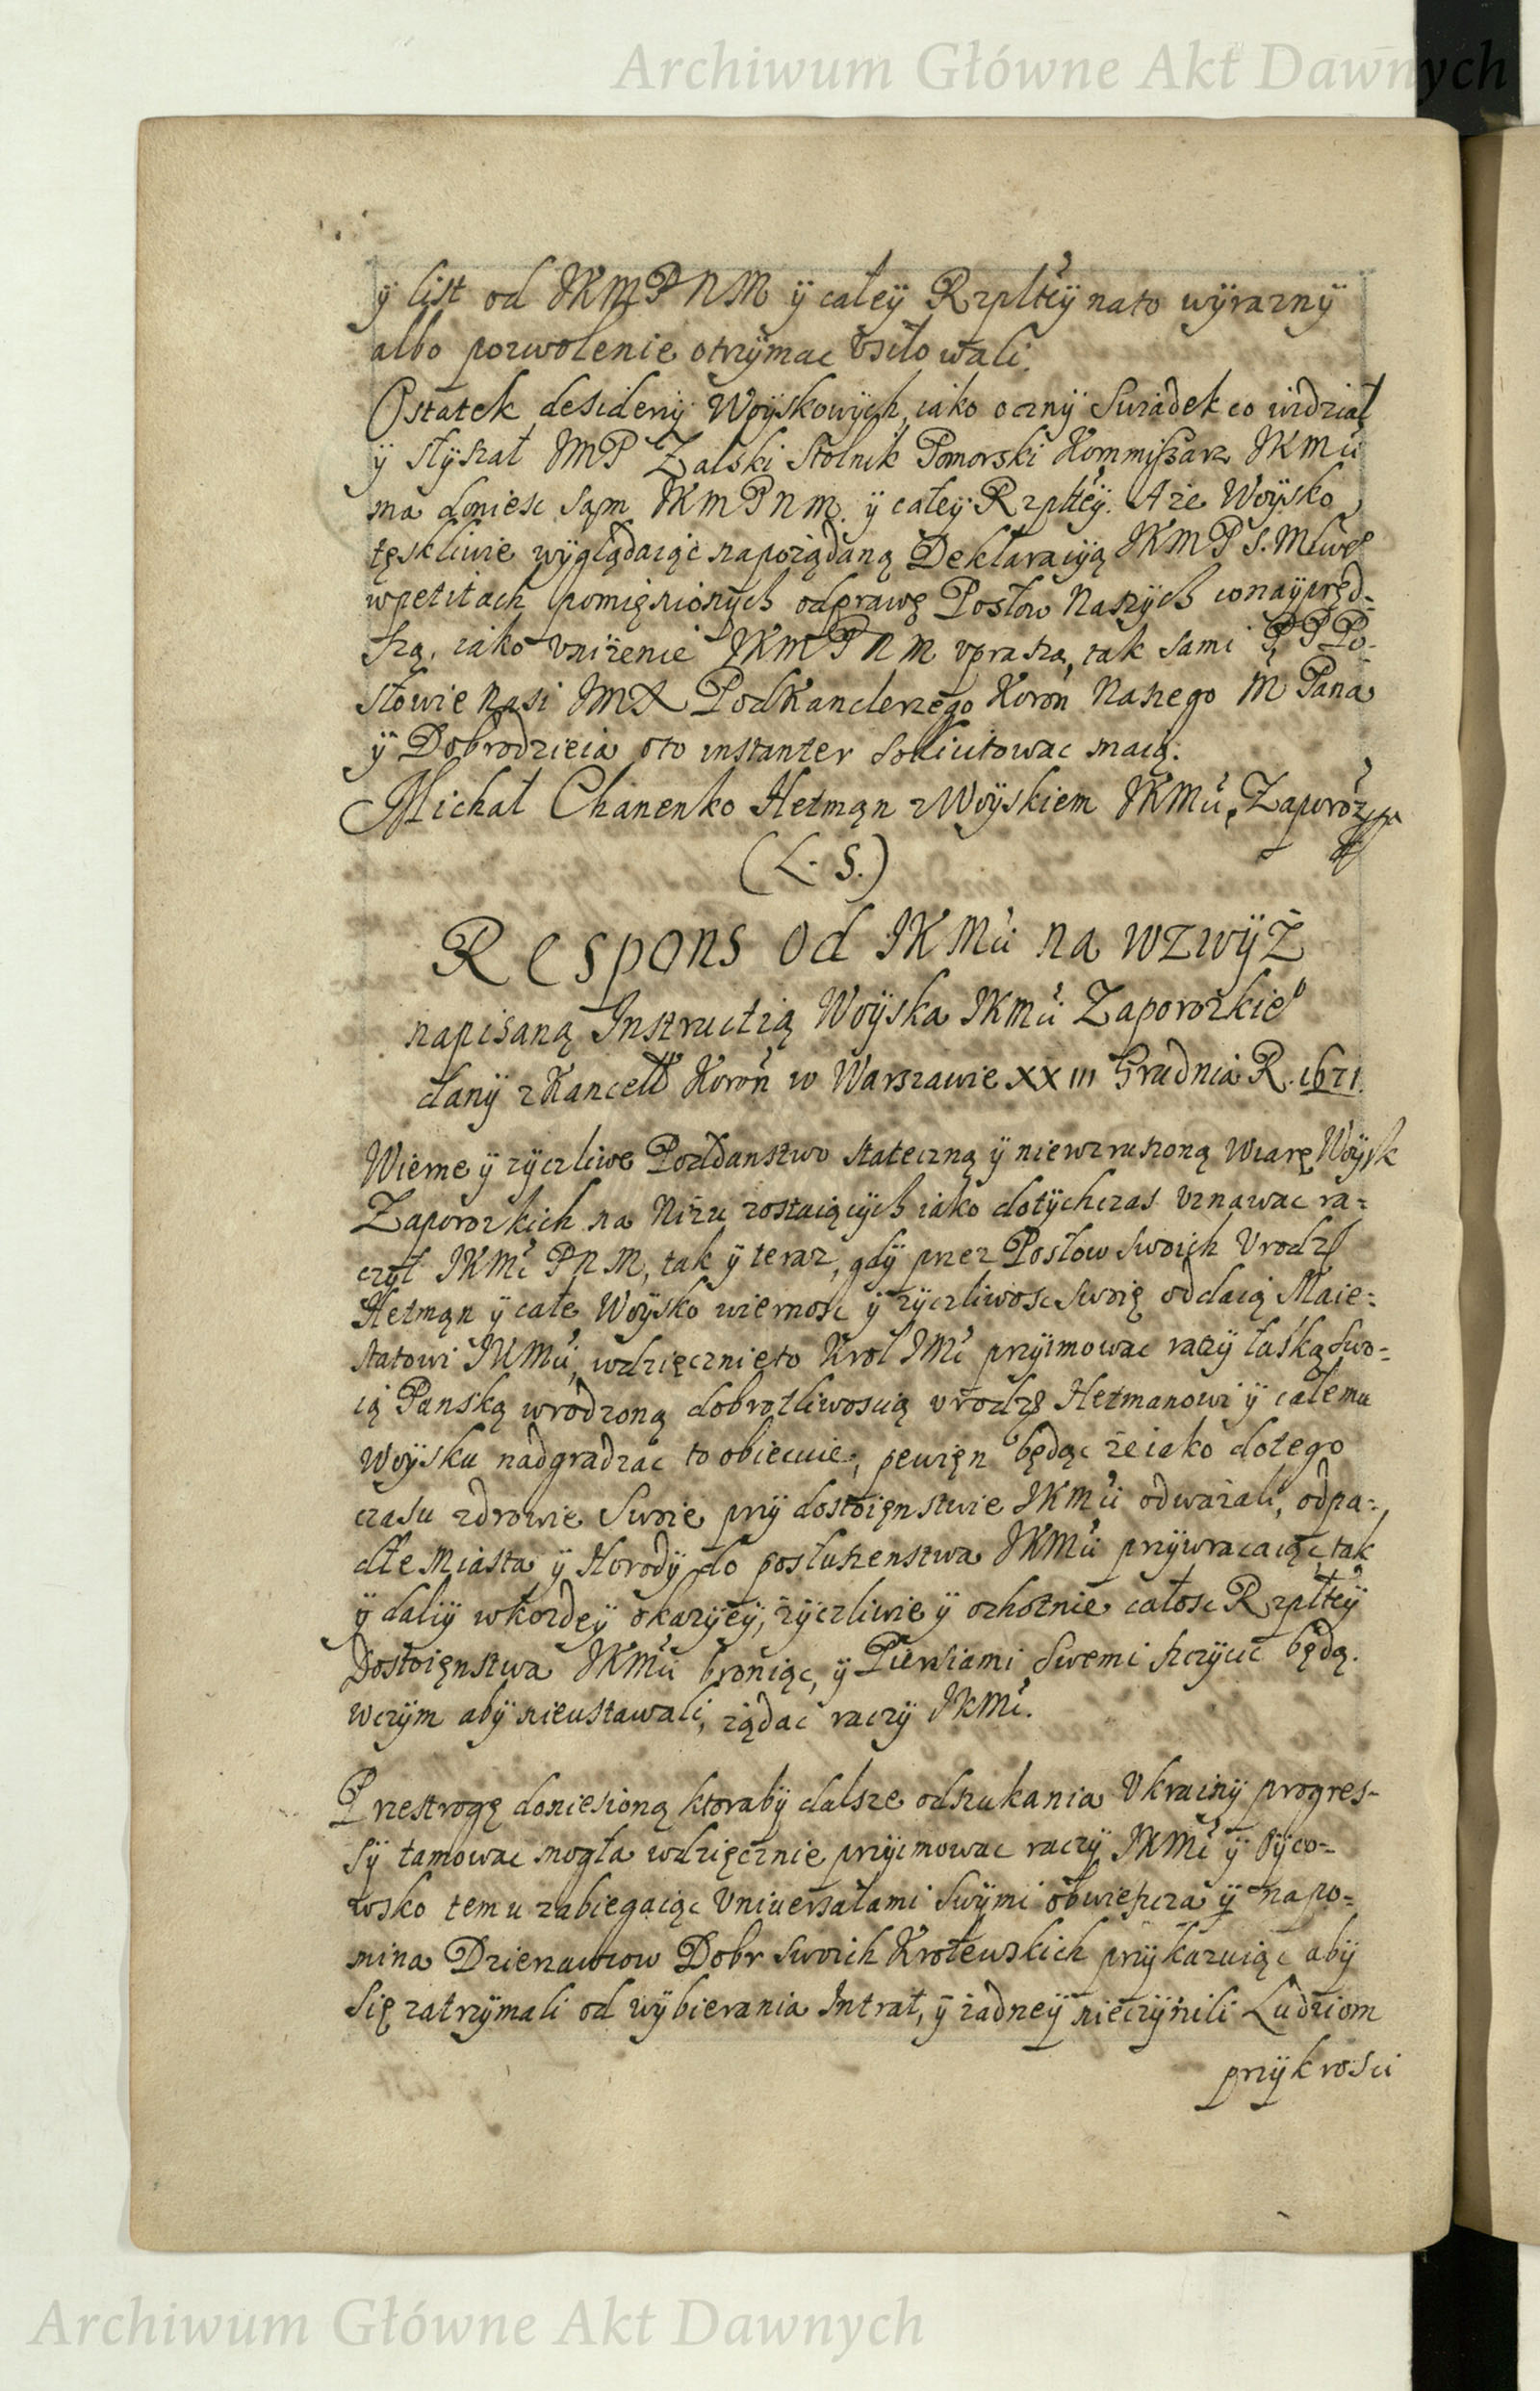 Archiwum Główne Akt Dawnych
ÿ list od JKMPNM ÿ całeÿ Rzpltėÿ nato wÿraznÿ
albo pozwolenie otrzÿmac vsiłowali.
Ostatek desiderÿ Woÿskowÿch, iako ocznÿ Swiadek co widział
ÿ słÿszał JMP Zalski Stolnik Pomorski Kommissarz JKMci
ma doniesc sąm JKMPNM. ÿ całeÿ Rzpltėÿ. A że Woÿsko
tęskliwie wÿglądaiąc na pożądaną Deklaracÿą JKMPS. Mciwė
w petitach pomięnionÿch odprawę Posłow Naszÿch conaÿpręd-
szą, iako vniżenie JKMPNM vprasza, tak sami PP Po-
słowie Nasi JMX PodKanclerzego Koroń Naszego M Pana
ÿ Dobrodzieia oto instanter sollicitowac maią.
Michał Chanenko Hetmąn z Woÿskiem JKMci Zaporoż
(L. S.)
Respons od JKMci na wzwÿż
napisaną Instructią Woÿska JKMci Zaporozkieo
danÿ z Kancell Koroń w Warszawie XXIII Grudnia R. 1671.
Wierne ÿ zÿczliwe Poddanstwo stateczną ÿ niewzruszoną Wiarę Woÿsk
Zaporozkich na Niżu zostaiącÿch iako dotÿchczas vznawac ra=
czÿł JKMć PNM, tak ÿ teraz, gdÿ przez Posłow swoich Vrodz
Hetmąn ÿ całe Woÿsko wiernosc ÿ zÿczliwosc swoię oddaią Maie=
statowi JKMci, wdzięcznie to Krol JMć przÿimowac raczÿ łaską swo=
ią Panską wrodzoną dobrotliwoscią vrodz Hetmanowi ÿ całemu
Woÿsku nadgradzac to obiecuie, pewięn będąc że iako do tego
czasu zdrowie Swoie przÿ dostoięnstwie JKMci odważali, odpa=
dłe Miasta ÿ Horodÿ do posłuszenstwa JKMci przÿwracaiąc, tak
ÿ daliÿ w kożdeÿ okazÿeÿ, zÿczliwie ÿ ochotnie całosc Rzpltėÿ
Dostoięnstwa JKMci broniąc, ÿ Piersiami Swemi szczÿcic będą.
Wczÿm abÿ nieustawali, ządac raczÿ JKMć.
Przestrogę doniesioną ktorabÿ dalsze odszukania Vkrainÿ progres-
sÿ tamowac mogła wdzięcznie przÿimowac raczÿ JKMć ÿ Oÿco-
wsko temu zabiegaiąc Vniversałami Swÿmi obwieszcza ÿ napo=
mina Dzierzawcow Dobr swoich Krolewskich przÿkazuiąc abÿ
się zatrzÿmali od wÿbierania Intrat, ÿ żadneÿ nieczÿnili Ludziom
przÿkrosci
Archiwum Główne Akt Dawnych